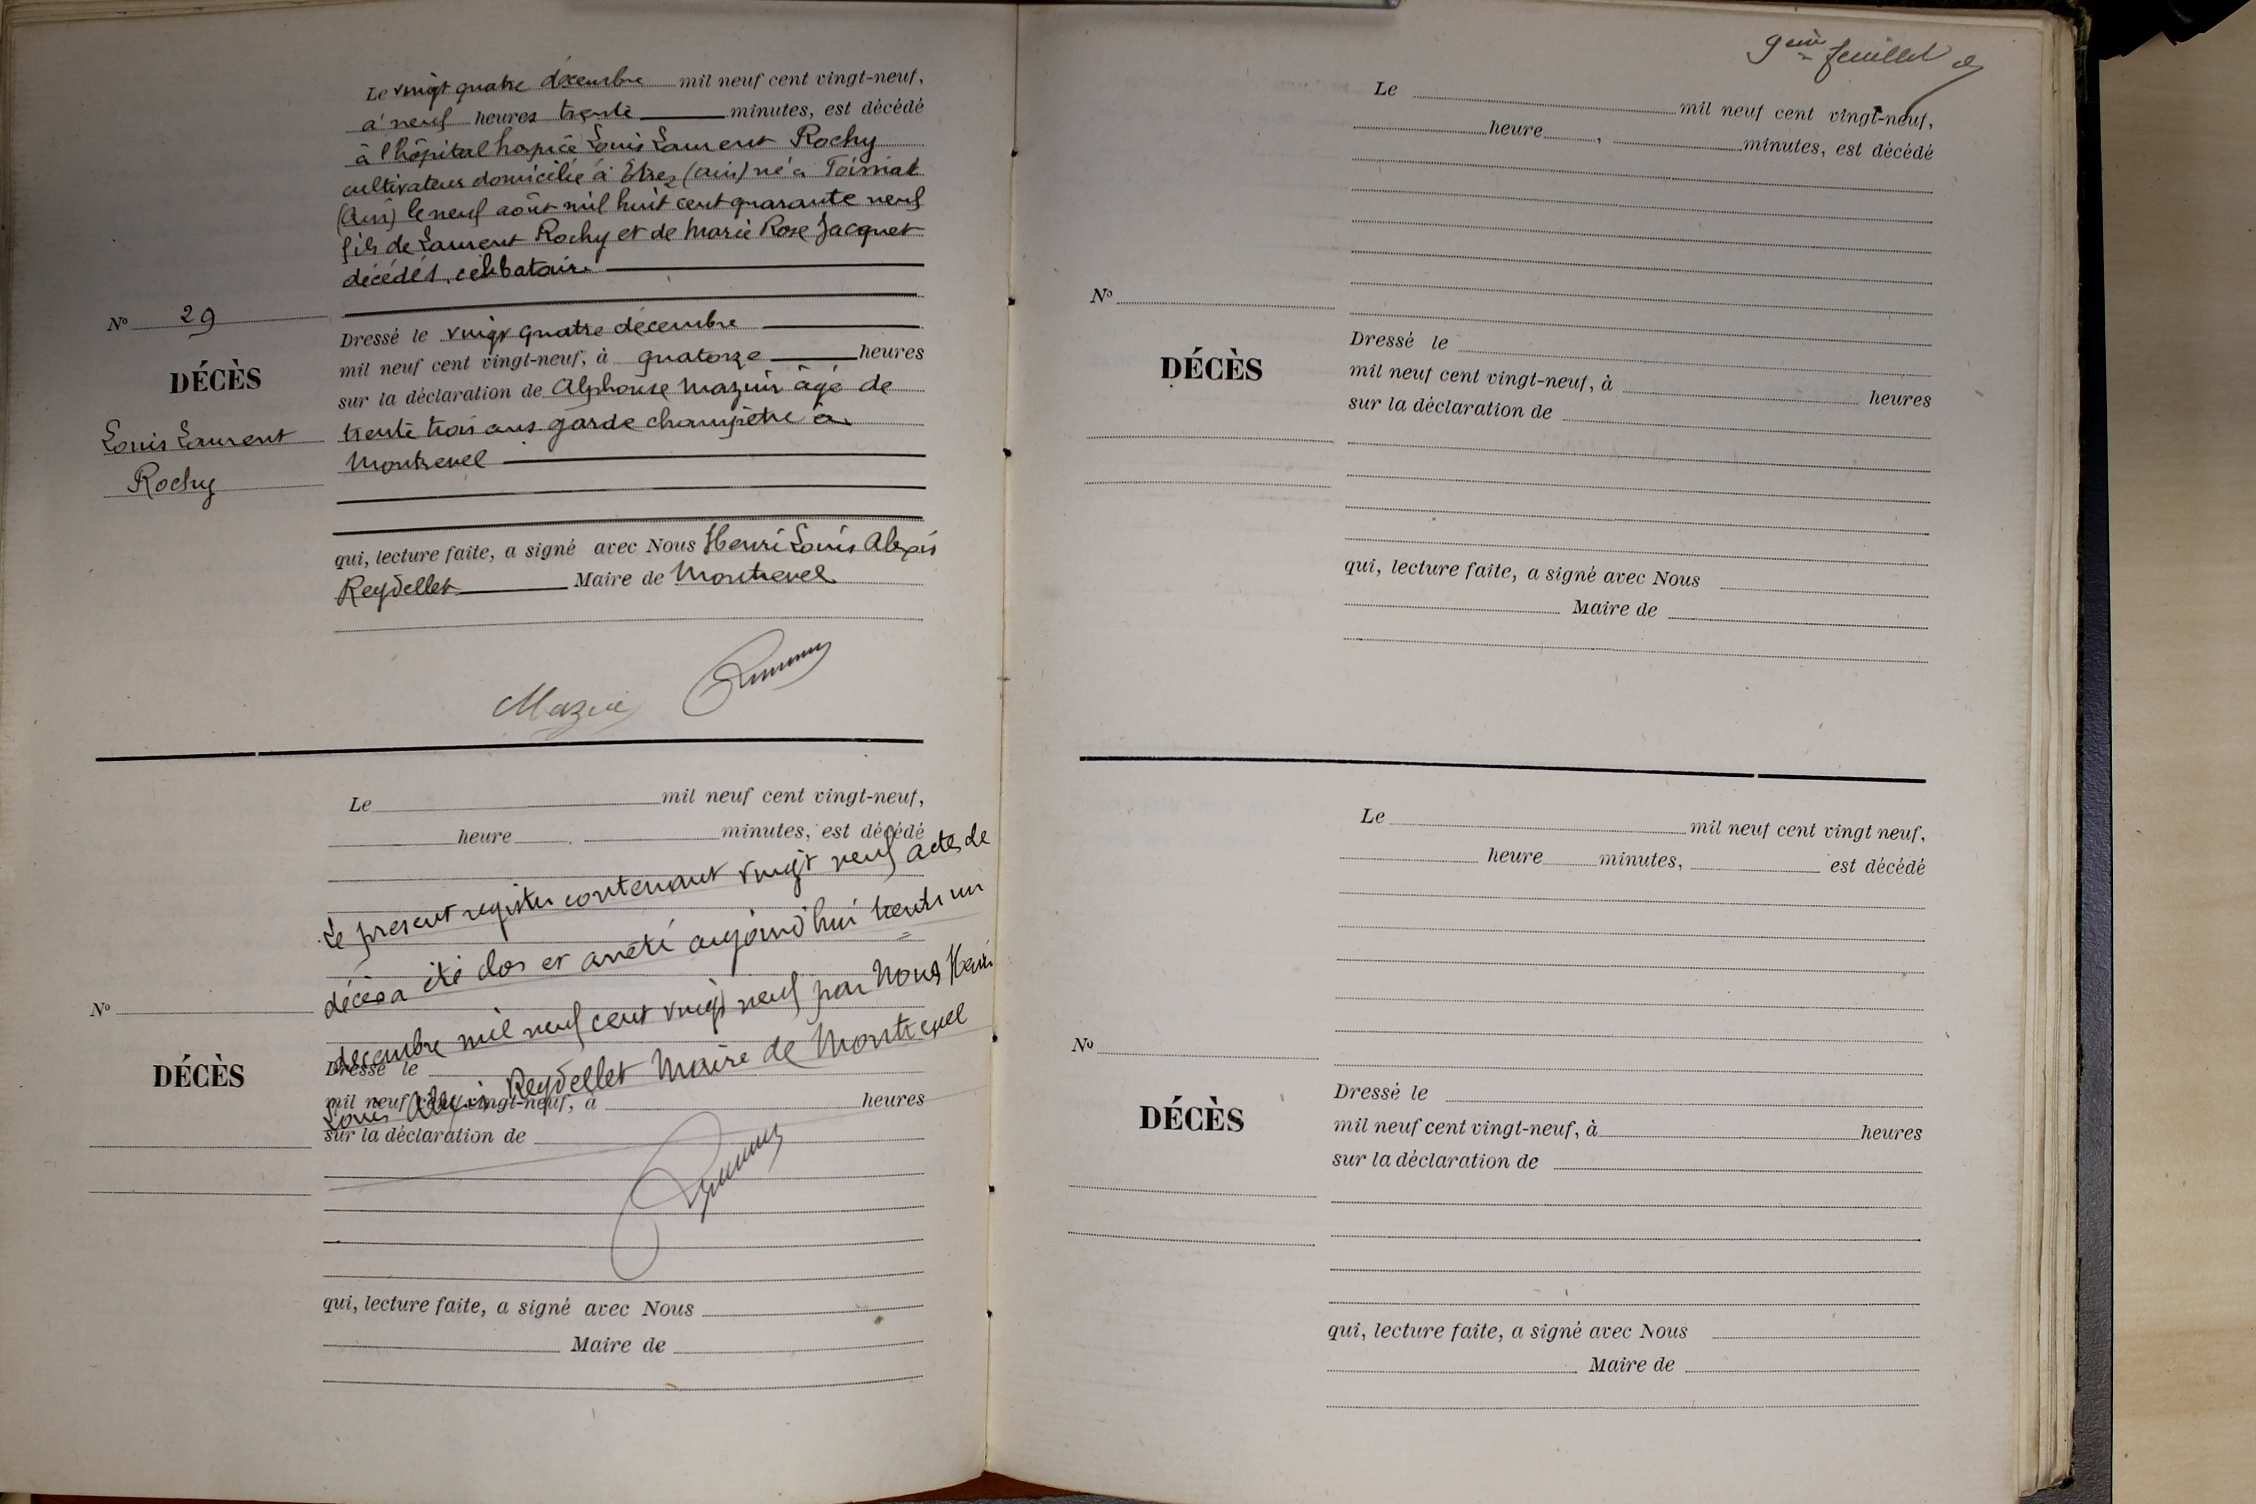 Le vingt quatre décembre mil neuf cent vingt-neuf,
à neuf heures trente minutes, est décédé
à l'hôpital hospice Louis Laurent Rochy
cultivateur domicilié à Etrez (ain) né à Foissiat
(Ain) le neuf août mil huit cent quarante neuf
fils de Laurent Rochy et de Marie Rose Jacquet
décédés, célibataire
No 29
DÉCÈS
Louis Laurent
Rochy
Dressé le vingt quatre décembre
mil neuf cent vingt-neuf, à quatorze heures
sur la déclaration de Alphonse Mazuir âgé de
trente trois ans garde champêtre à
Montrevel
qui, lecture faite, a signé avec Nous Henri Louis Alexis
Reydellet Maire de Montrevel
Mazuir
Le mil neuf cent vingt-neuf,
heure minutes, est décédé
Le present registre contenant vingt neuf actes de
décès a été clos et arrêté aujourd'hui trente un
decembre mil neuf cent vingt neuf par Nous Henri
Louis Alexis Reydellet Maire de Montrevel
No
DÉCÈS
Dressé le
mil neuf cent vingt-neuf, à heures
sur la déclaration de
qui, lecture faite, a signé avec Nous
Maire de
9eme feuillet
Le mil neuf cent vingt-neuf,
heure , minutes, est décédé
No
DÉCÈS
Dressé le
mil neuf cent vingt-neuf, à heures
sur la déclaration de
qui, lecture faite, a signé avec Nous
Maire de
Le mil neuf cent vingt neuf,
heure minutes, est décédé
No
DÉCÈS
Dressé le
mil neuf cent vingt-neuf, à heures
sur la déclaration de
qui, lecture faite, a signé avec Nous
Maire de